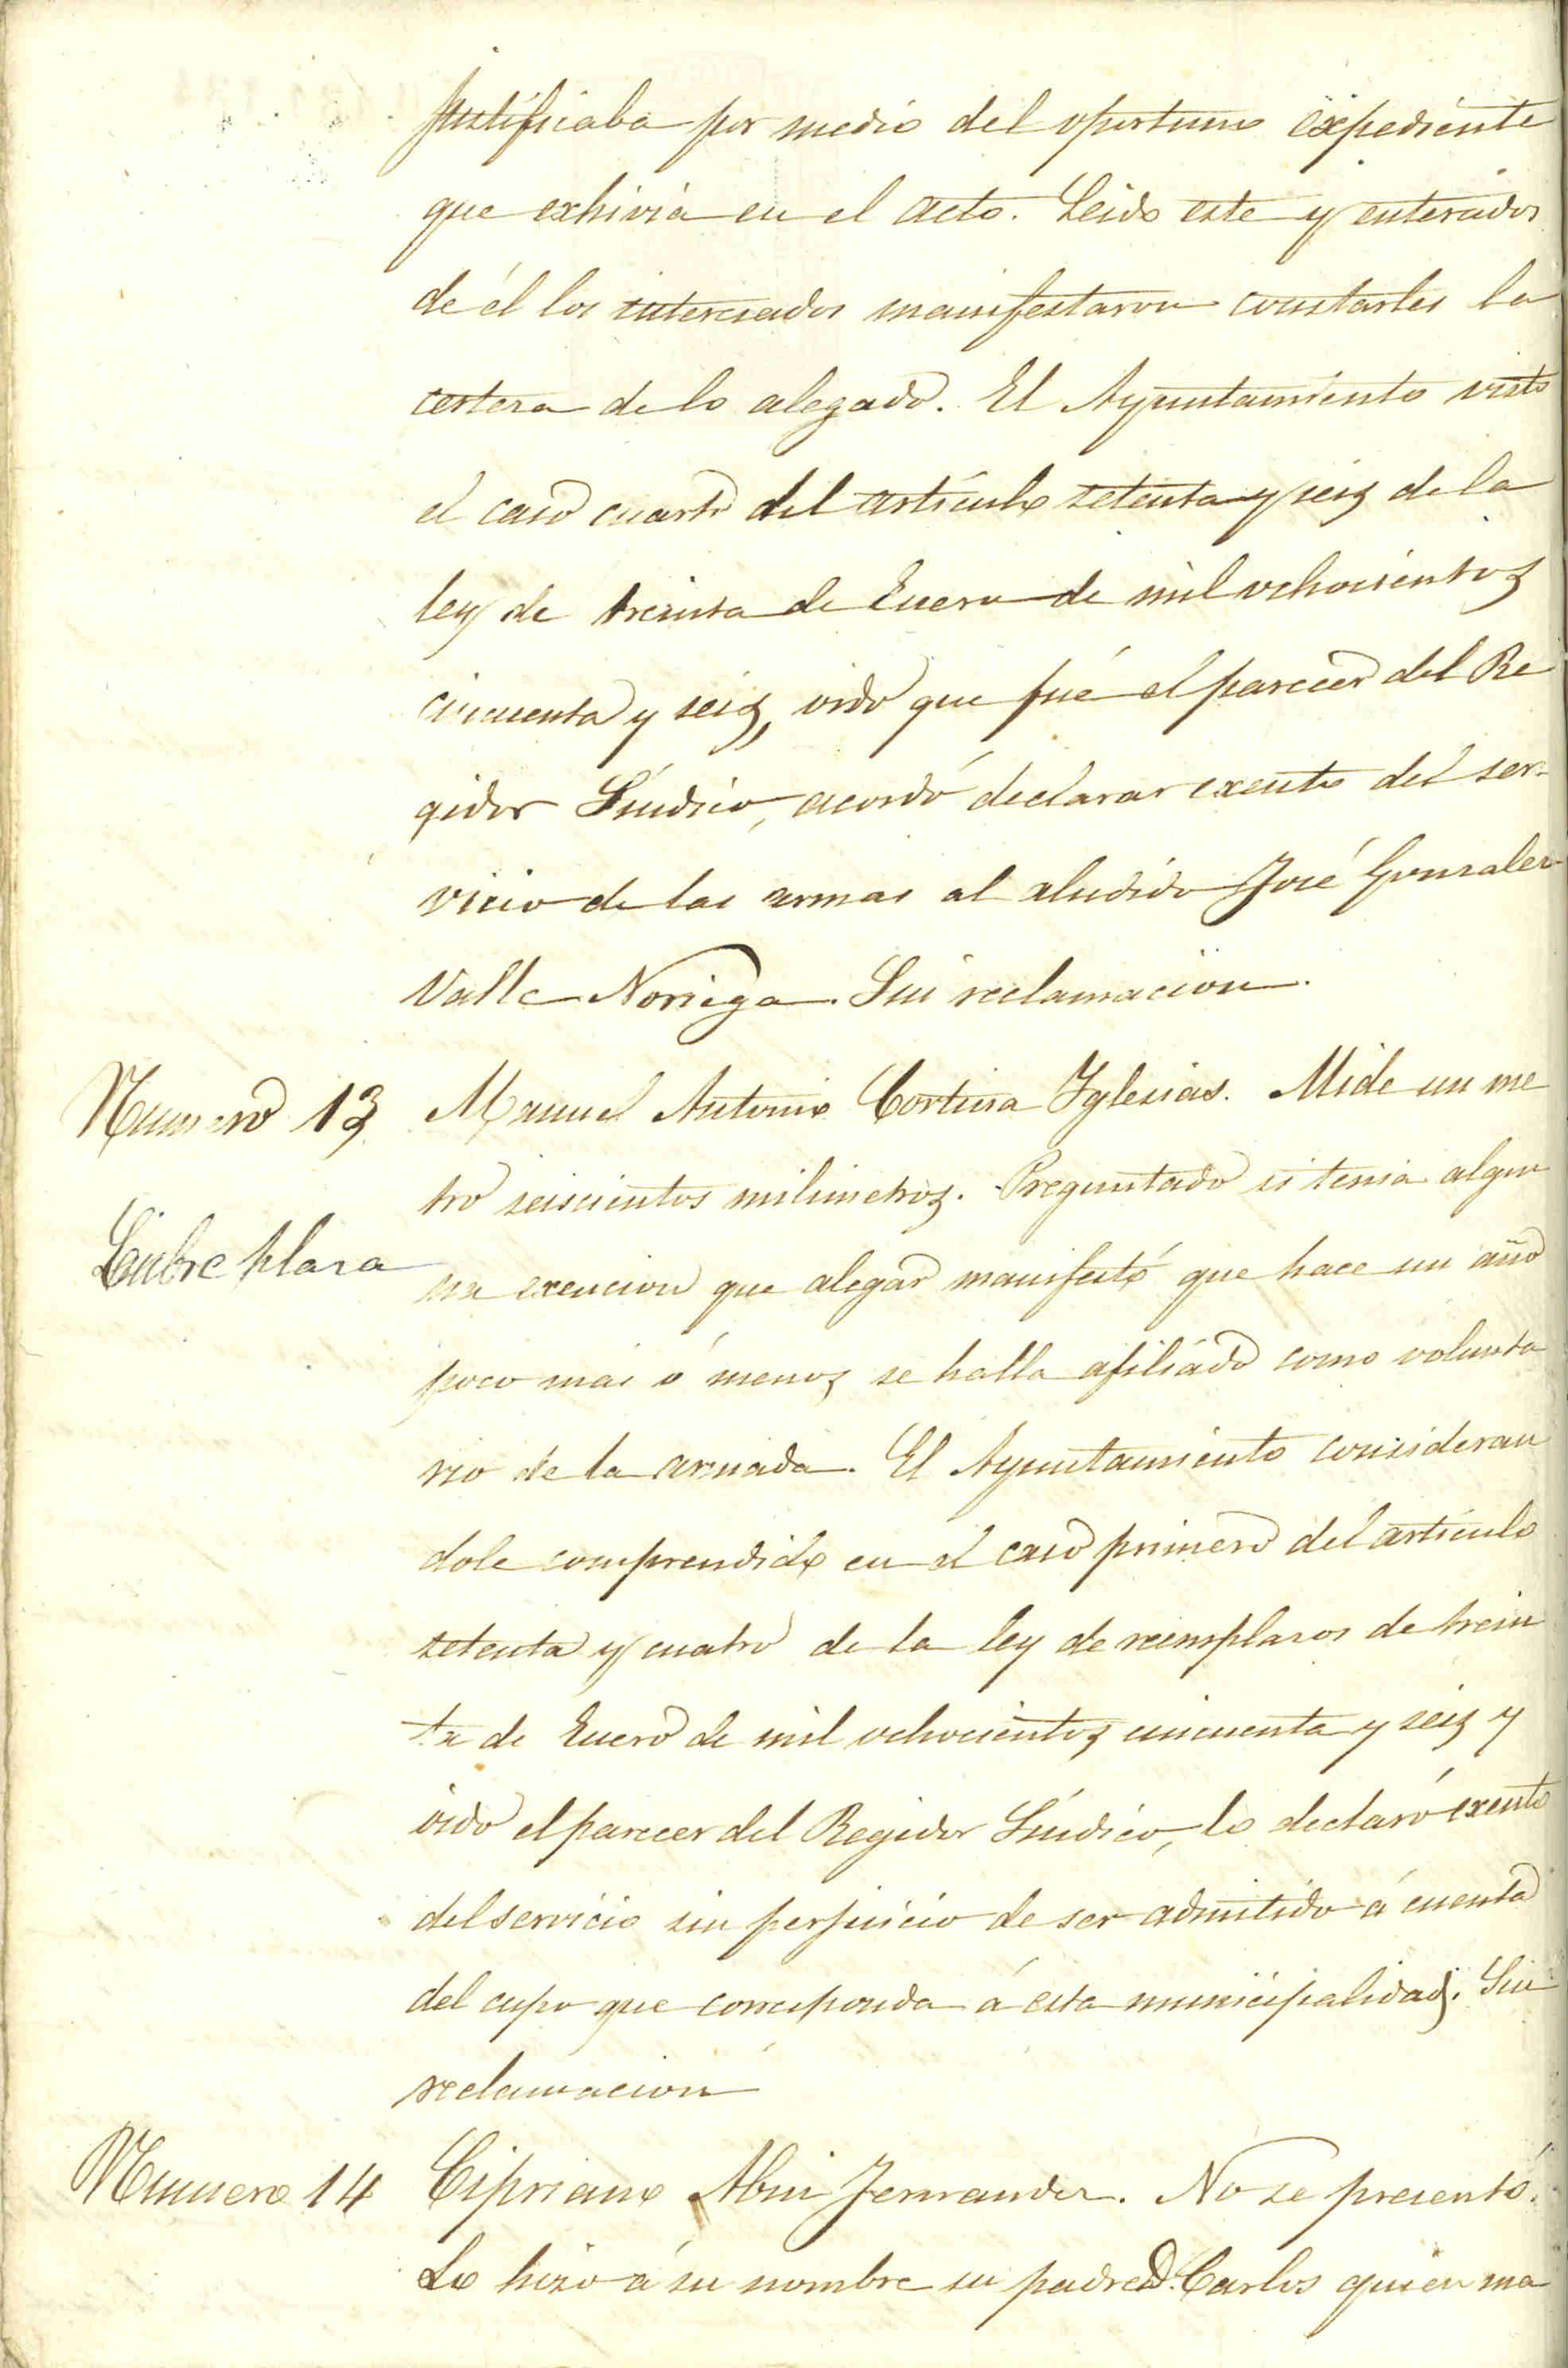 justificaba por medio del oportuno expediente
que exhivia en el acto. Leido este y enterados
de él los interesados manifestaron constarles la
certeza de lo alegado. El Ayuntamiento visto
el caso cuarto del artículo setenta y seis de la
ley de treinta de Enero de mil ochocientos
cincuenta y seis, oido que fué el parecer del Re
gidor Síndico, acordó declarar exento del ser-
vicio de las armas al aludido José Gonzalez
Valle Noriega. Sin reclamacion.
Numero 13 Manuel Antonio Cortina Yglesias. Mide un me
tro seiscientos milimetros. Preguntado si tenia algu
Cubre plaza
na exencion que alegar manifestó que hace un año
poco mas ó menos se halla afiliado como volunta
rio de la armada. El Ayuntamiento consideran
dole comprendido en el caso primero del artículo
setenta y cuatro de la ley de reemplazos de trein
ta de Enero de mil ochocientos cincuenta y seis y
oido el parecer del Regidor Síndico, lo declaró exento
del servicio sin perjuicio de ser admitido á cuenta
del cupo que corresponda á esta municipalidad. Sin
reclamacion
Numero 14 Cipriano Abin Fernandez. No se presentó.
Lo hizo á su nombre su padre D. Carlos quien ma